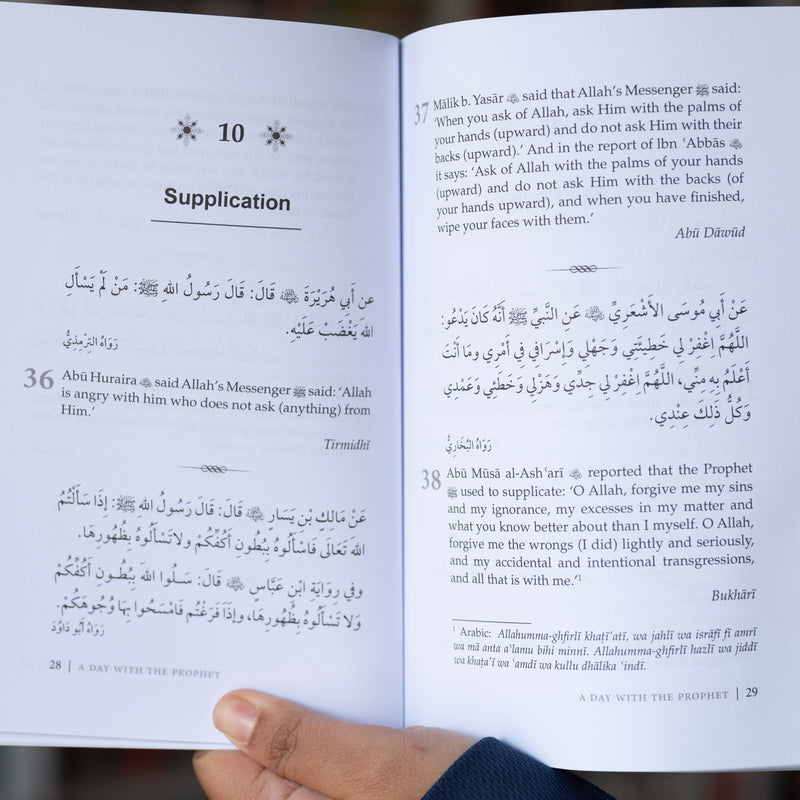 10
Supplication
عن أَبِي هُرَيْرَةَ ﷺ قَالَ: قَالَ رَسُولُ اللهِ ﷺ: مَنْ لَمْ يَسْأَلِ
اللهَ يَغْضَبْ عَلَيْهِ.
رَوَاهُ التِرْمِذِيُّ
36 Abū Huraira said Allah's Messenger ﷺ said: 'Allah
is angry with him who does not ask (anything) from
Him.'
Tirmidhī
عَنْ مَالِكِ بْنِ يَسَارٍ قَالَ: قَالَ رَسُولُ اللهِ ﷺ: إِذَا سَأَلْتُمُ
اللهَ تَعَالَى فَاسْأَلُوهُ بِبُطُونِ أَكُفِّكُمْ وَلاتَسْأَلُوهُ بِظُهُورِهَا.
وفي رِوَايَةِ ابْنِ عَبَّاسٍ قَالَ: سَلُوا اللهَ بِبُطُونِ أَكُفِّكُمْ
وَلا تَسْأَلُوهُ بِظُهُورِهَا، وإِذَا فَرَغْتُم فَامْسَحُوا بِهَا وُجُوهَكُمْ.
رَوَاهُ أَبُو دَاوُدَ
28 | A DAY WITH THE PROPHET
37 Mālik b. Yasār said that Allah's Messenger ﷺ said:
'When you ask of Allah, ask Him with the palms of
your hands (upward) and do not ask Him with their
backs (upward).' And in the report of Ibn 'Abbās
it says: 'Ask of Allah with the palms of your hands
(upward) and do not ask Him with the backs (of
your hands upward), and when you have finished,
wipe your faces with them.'
Abū Dāwūd
عَنْ أَبِي مُوسَى الأَشْعَرِيِّ عَنِ النَّبِيِّ ﷺ أَنَّهُ كَانَ يَدْعُو:
اللَّهُمَّ اغْفِرْ لِي خَطِيئَتِي وَجَهْلِي وَإِسْرَافِي فِي أَمْرِي وَمَا أَنْتَ
أَعْلَمُ بِهِ مِنِّي، اللَّهُمَّ اغْفِرْ لِي جِدِّي وَهَزْلِي وَخَطَئِي وَعَمْدِي
وَكُلُّ ذَلِكَ عِنْدِي.
رَوَاهُ البُخَارِيُّ
38 Abū Mūsā al-Ash'arī reported that the Prophet
ﷺ used to supplicate: 'O Allah, forgive me my sins
and my ignorance, my excesses in my matter and
what you know better about than I myself. O Allah,
forgive me the wrongs (I did) lightly and seriously,
and my accidental and intentional transgressions,
and all that is with me.'¹
Bukhārī
¹ Arabic: Allahumma-ghfirlī khaṭī'atī, wa jahlī wa isrāfī fī amrī
wa mā anta a'lamu bihi minnī. Allahumma-ghfirlī hazlī wa jiddī
wa khaṭa'ī wa 'amdī wa kullu dhālika 'indī.
A DAY WITH THE PROPHET | 29